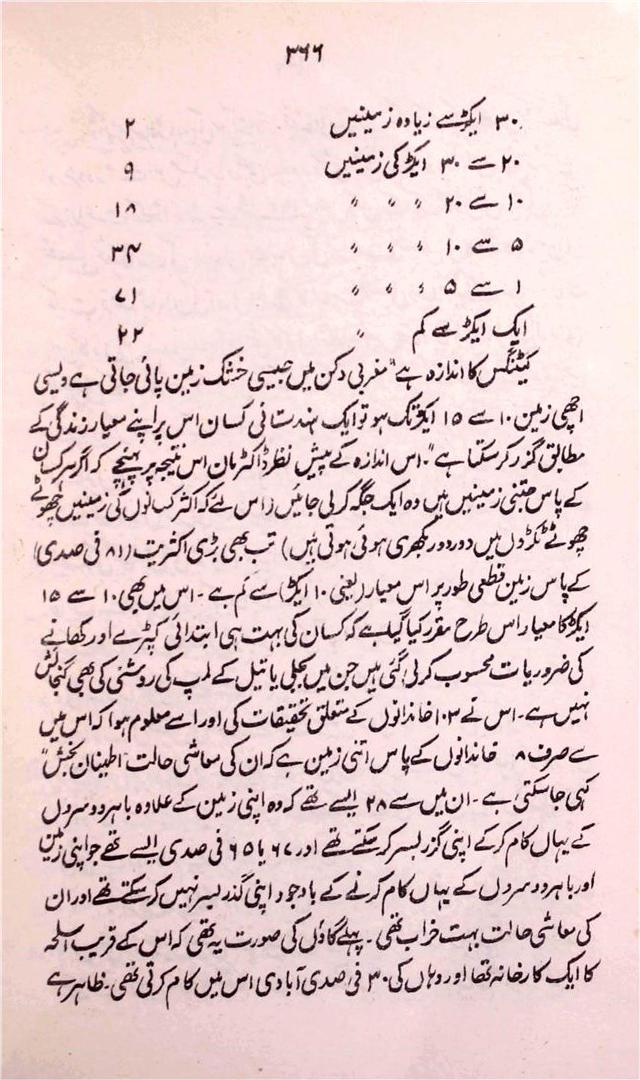 ۳۶۶
۳۰ ایکڑ سے زیادہ زمینیں ۲
۲۰ سے ۳۰ ایکڑ کی زمینیں ۹
۱۰ سے ۲۰ 〃 〃 〃 ۱۸
۵ سے ۱۰ 〃 〃 〃 ۳۴
۱ سے ۵ 〃 〃 〃 ۷۱
ایک ایکڑ سے کم 〃 ۲۲
کیٹنگس کا اندازہ ہے "مغربی دکن میں جیسی خشک زمین پائی جاتی ہے ویسی
اچھی زمین ۱۰ سے ۱۵ ایکڑ تک ہو تو ایک ہندستانی کسان اس پر اپنے معیار زندگی کے
مطابق گزر کر سکتا ہے"۔ اس اندازہ کے پیش نظر ڈاکٹر مان اس نتیجہ پر پہنچے کہ اگر ہر کسان
کے پاس جتنی زمینیں ہیں وہ ایک جگہ کر لی جائیں (اس لئے کہ اکثر کسانوں کی زمینیں چھوٹے
چھوٹے ٹکڑوں میں دور دور بکھری ہوئی ہوتی ہیں) تب بھی بڑی اکثریت (۸۱ فی صدی)
کے پاس زمین قطعی طور پر اس معیار (یعنی ۱۰ ایکڑ) سے کم ہے۔ اس میں بھی ۱۰ سے ۱۵
ایکڑ کا معیار اس طرح مقرر کیا گیا ہے کہ کسان کی بہت ہی ابتدائی کپڑے اور کھانے
کی ضروریات محسوب کر لی گئی ہیں جن میں بجلی یا تیل کے لمپ کی روشنی کی بھی گنجائش
نہیں ہے۔ اس نے ۱۰۳ خاندانوں کے متعلق تحقیقات کی اور اسے معلوم ہوا کہ اس میں
سے صرف ۸ خاندانوں کے پاس اتنی زمین ہے کہ ان کی معاشی حالت "اطینان بخش"
کہی جا سکتی ہے۔ ان میں سے ۲۸ ایسے تھے کہ وہ اپنی زمین کے علاوہ باہر دوسروں
کے یہاں کام کر کے اپنی گزر بسر کر سکتے تھے اور ۶۷ یا ۶۵ فی صدی ایسے تھے جو اپنی زمین
اور باہر دوسروں کے یہاں کام کرنے کے باوجود اپنی گذر بسر نہیں کر سکتے تھے اور ان
کی معاشی حالت بہت خراب تھی۔ پہلے گاؤں کی صورت یہ تھی کہ اس کے قریب اسلحہ
کا ایک کارخانہ تھا اور وہاں کی ۳۰ فی صدی آبادی اس میں کام کرتی تھی۔ ظاہر ہے